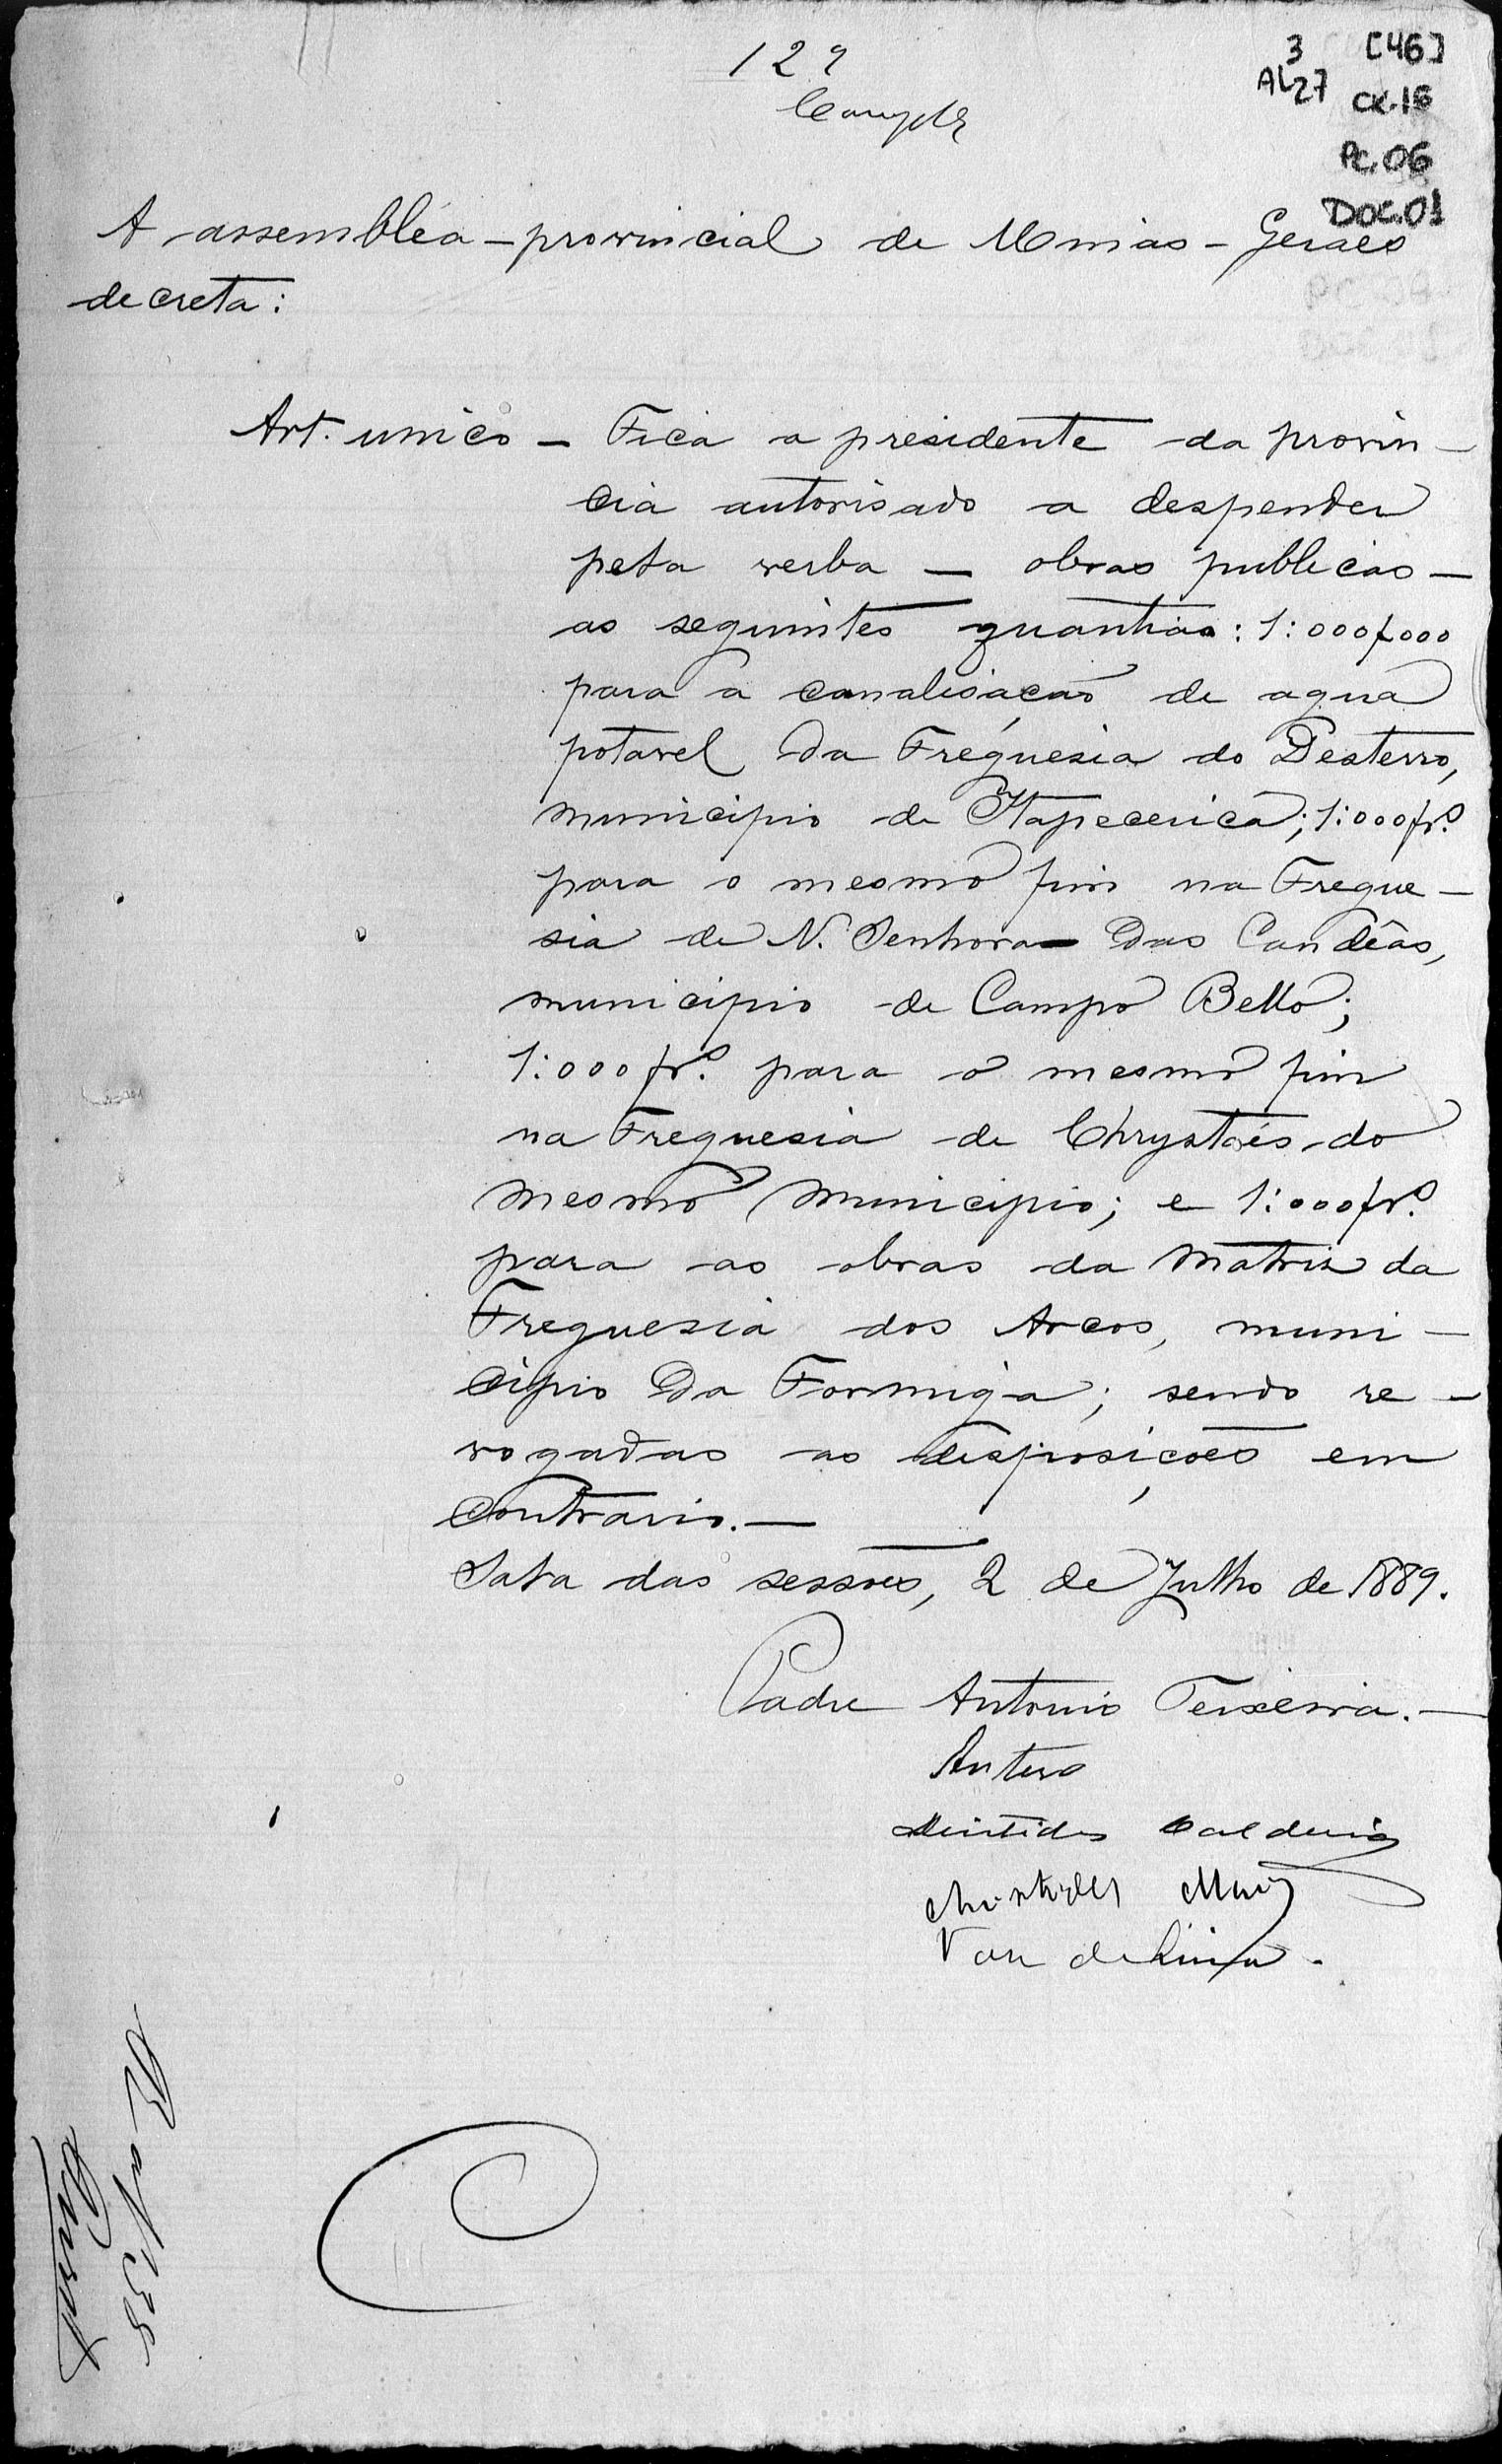 129
3 [46]
AL27 CX.16
Pc.06
DOC.01
A assembléa provincial de Minas-Geraes
decreta:
Art. unico — Fica o presidente da provin-
cia autorisado a despender
pela verba — obras publicas —
as seguintes quantias: 1:000$000
para a canalisação de agua
potavel da Freguesia do Desterro,
municipio de Itapecerica; 1:000$rs.
para o mesmo fim na Fregue-
sia de N. Senhora das Candêas,
municipio de Campo Bello;
1:000$rs. para o mesmo fim
na Freguesia de Chrystaes do
mesmo municipio; e 1:000$rs.
para as obras da Matriz da
Freguesia dos Arcos, muni-
cipio da Formiga; sendo re-
vogadas as disposições em
contrario.—
Sala das sessões, 2 de Julho de 1889.
Padre Antonio Teixeira.—
Antero